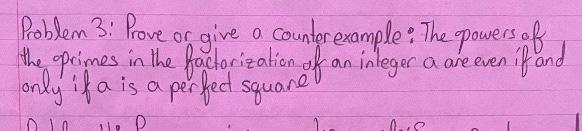 Problem 3: Prove or give a counter example: The powers of
the primes in the factorization of an integer a are even if and
only if a is a perfect square